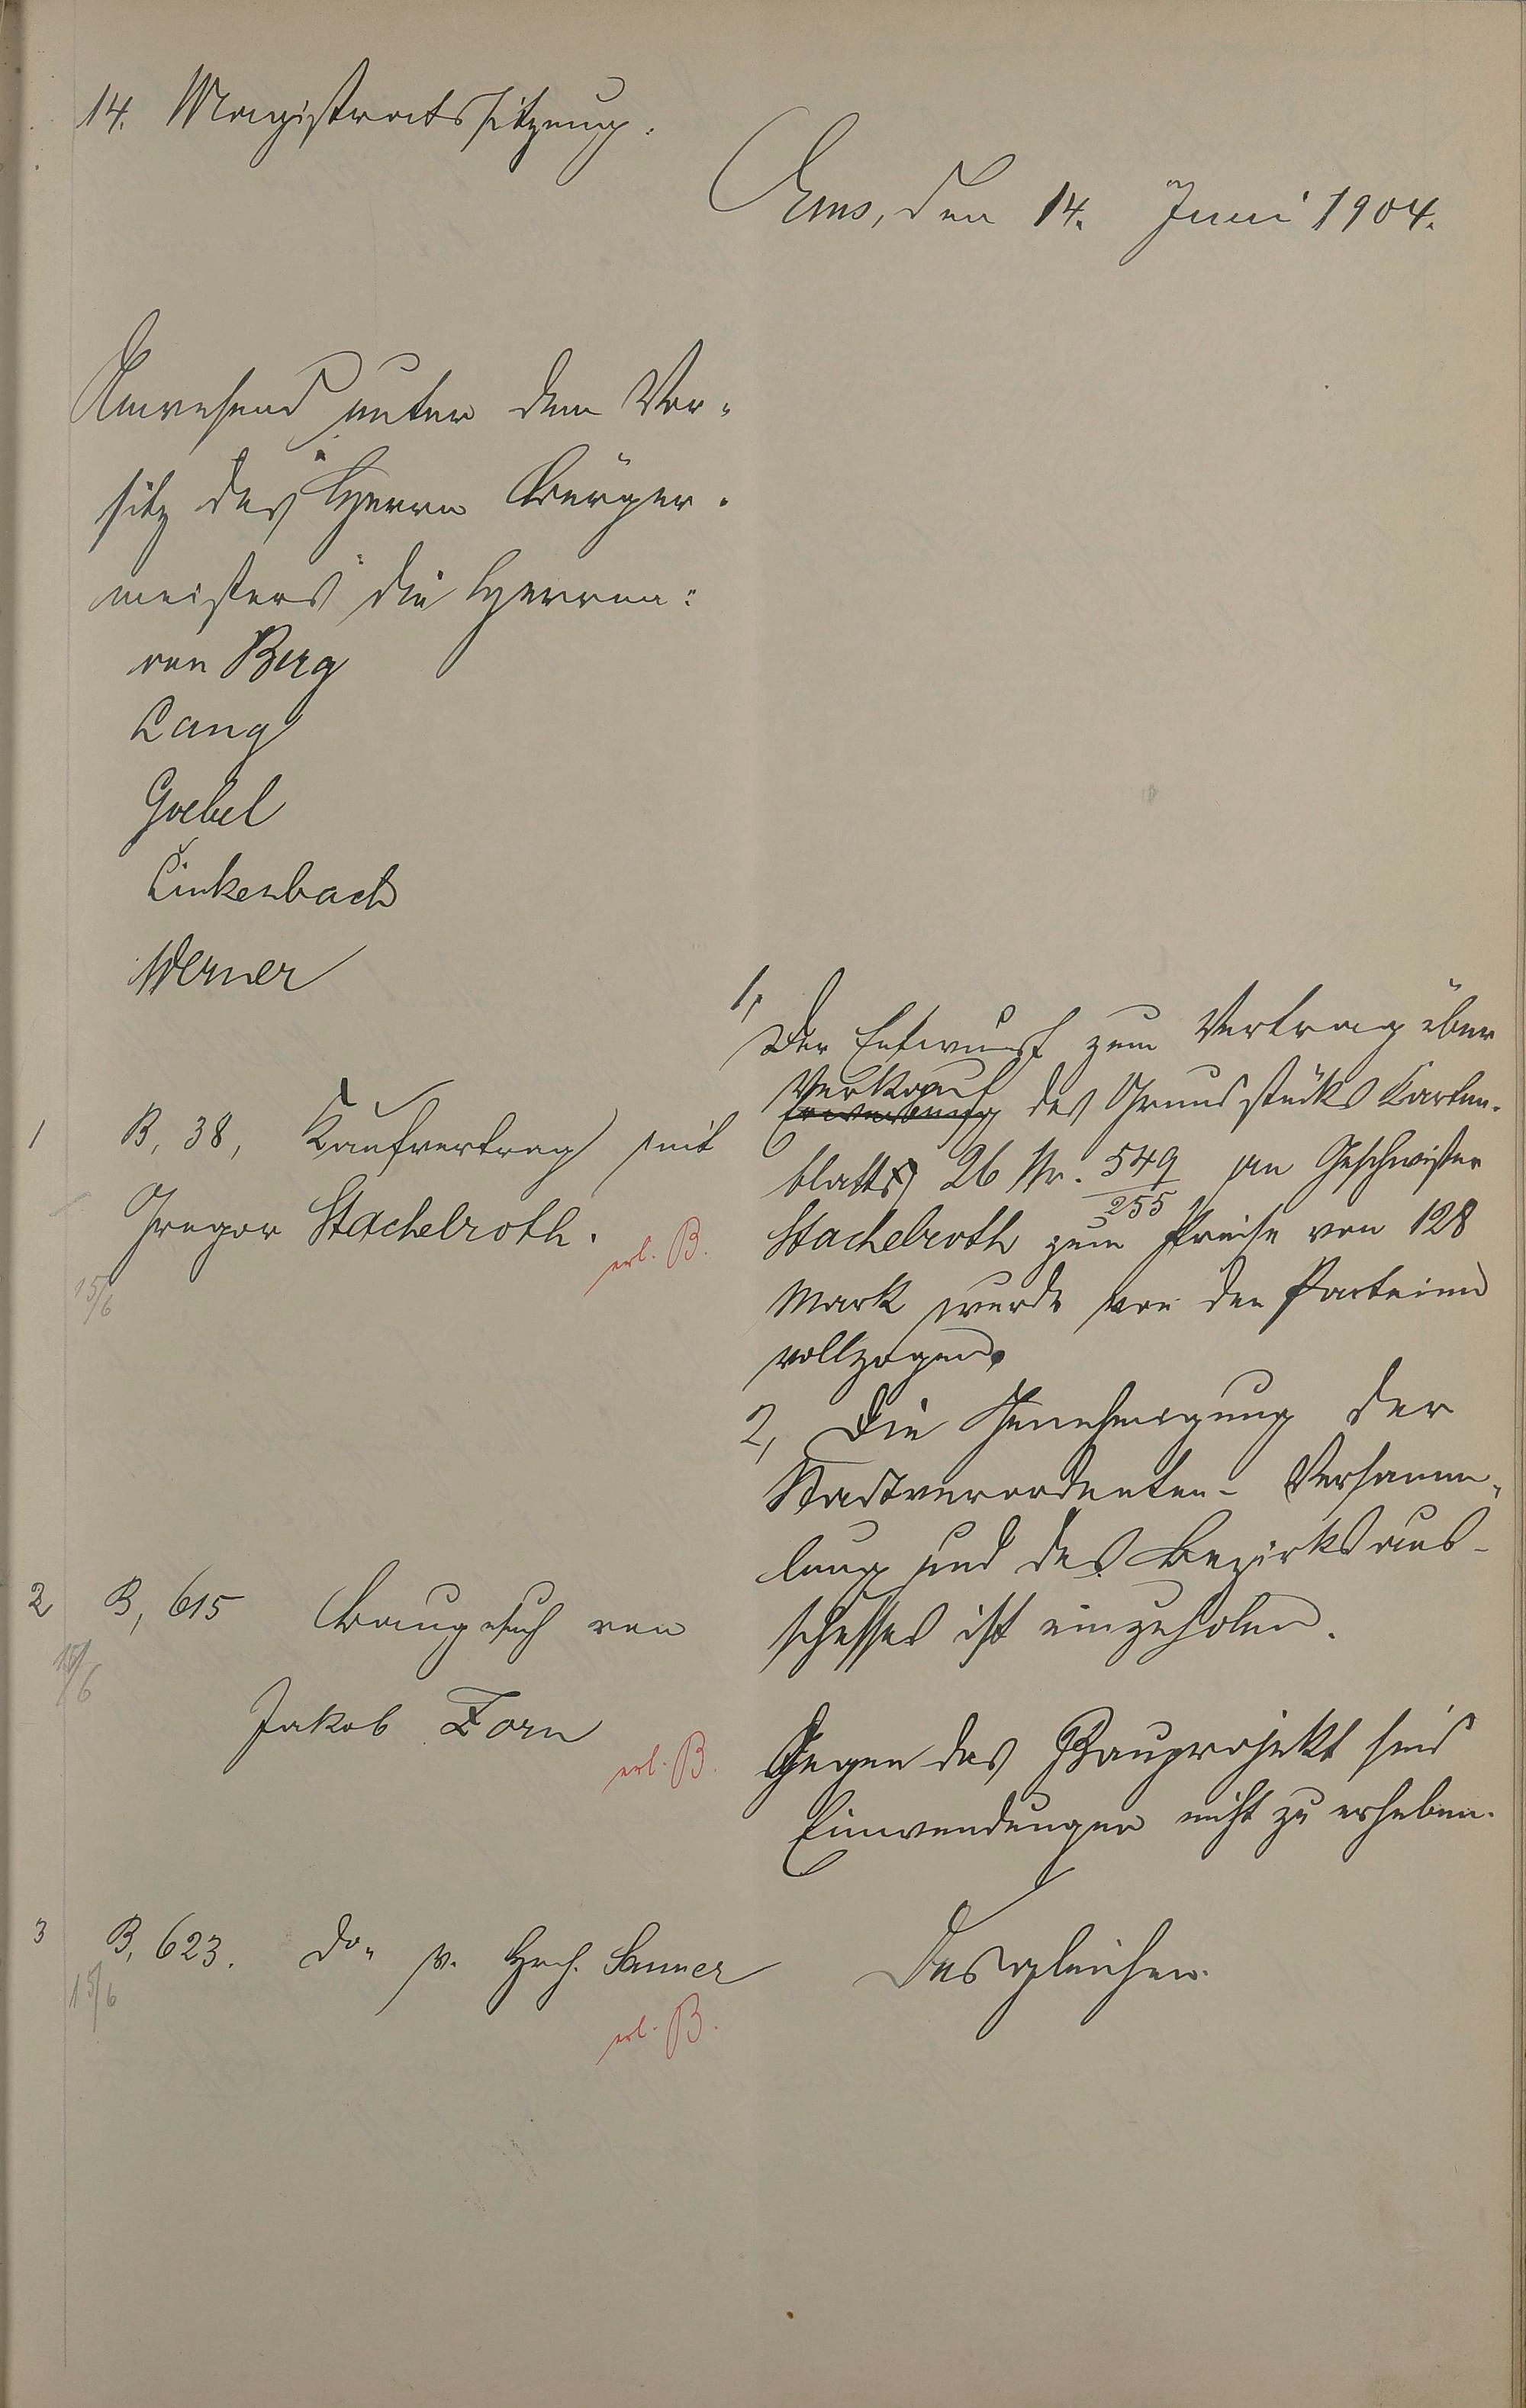 14. Magistratssitzung.
Ems, den 14. Juni 1904.
Anwesend unter dem Vor-
sitz des Herrn Bürger-
meisters die Herren:
von Berg
Lang
Goebel
Linkenbach
Werner
1 B, 38, Kaufvertrag mit
Gregor Stachelroth.
erl. B.
15/6
1, Der Entwurf zum Vertrag über
Verkauf
Erwerbung des Grundstücks Karten-
blatts 26 Nr. 549/255 an Geschwister
Stachelroth zum Preise von 128
Mark wurde von den Parteien
vollzogen.
2, Die Genehmigung der
Stadtverordneten-Versamm-
lung und des Bezirksaus-
schusses ist einzuholen.
2 B, 615 Baugesuch von
15/6
Jakob Zorn
erl. B.
Gegen das Bauprojekt sind
Einwendungen nicht zu erheben.
3 B, 623. do. v. Hrch. Sanner
15/6
erl. B.
Desgleichen.